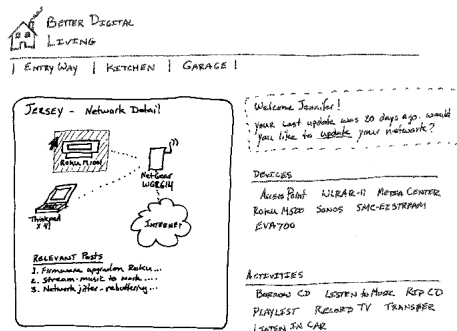 BETTER DIGITAL
LIVING
| ENTRY WAY | KITCHEN | GARAGE |
JERSEY - Network Detail
Roku M500
NetGear
WGR614
Thinkpad
X41
INTERNET
RELEVANT Posts
1. Firmware upgrade Roku...
2. Stream-music to work....
3. Network jitter-rebuffering...
Welcome Jennifer!
your last update was 20 days ago. would
you like to update your network?
DEVICES
Access Point WLRAR-11 MEDIA CENTER
ROKU M500 SONOS SMC-EZSTREAM
EVA700
ACTIVITIES
BORROW CD LISTEN to MUSIC RIP CD
PLAYLIST RECORD TV TRANSFER
LISTEN IN CAR